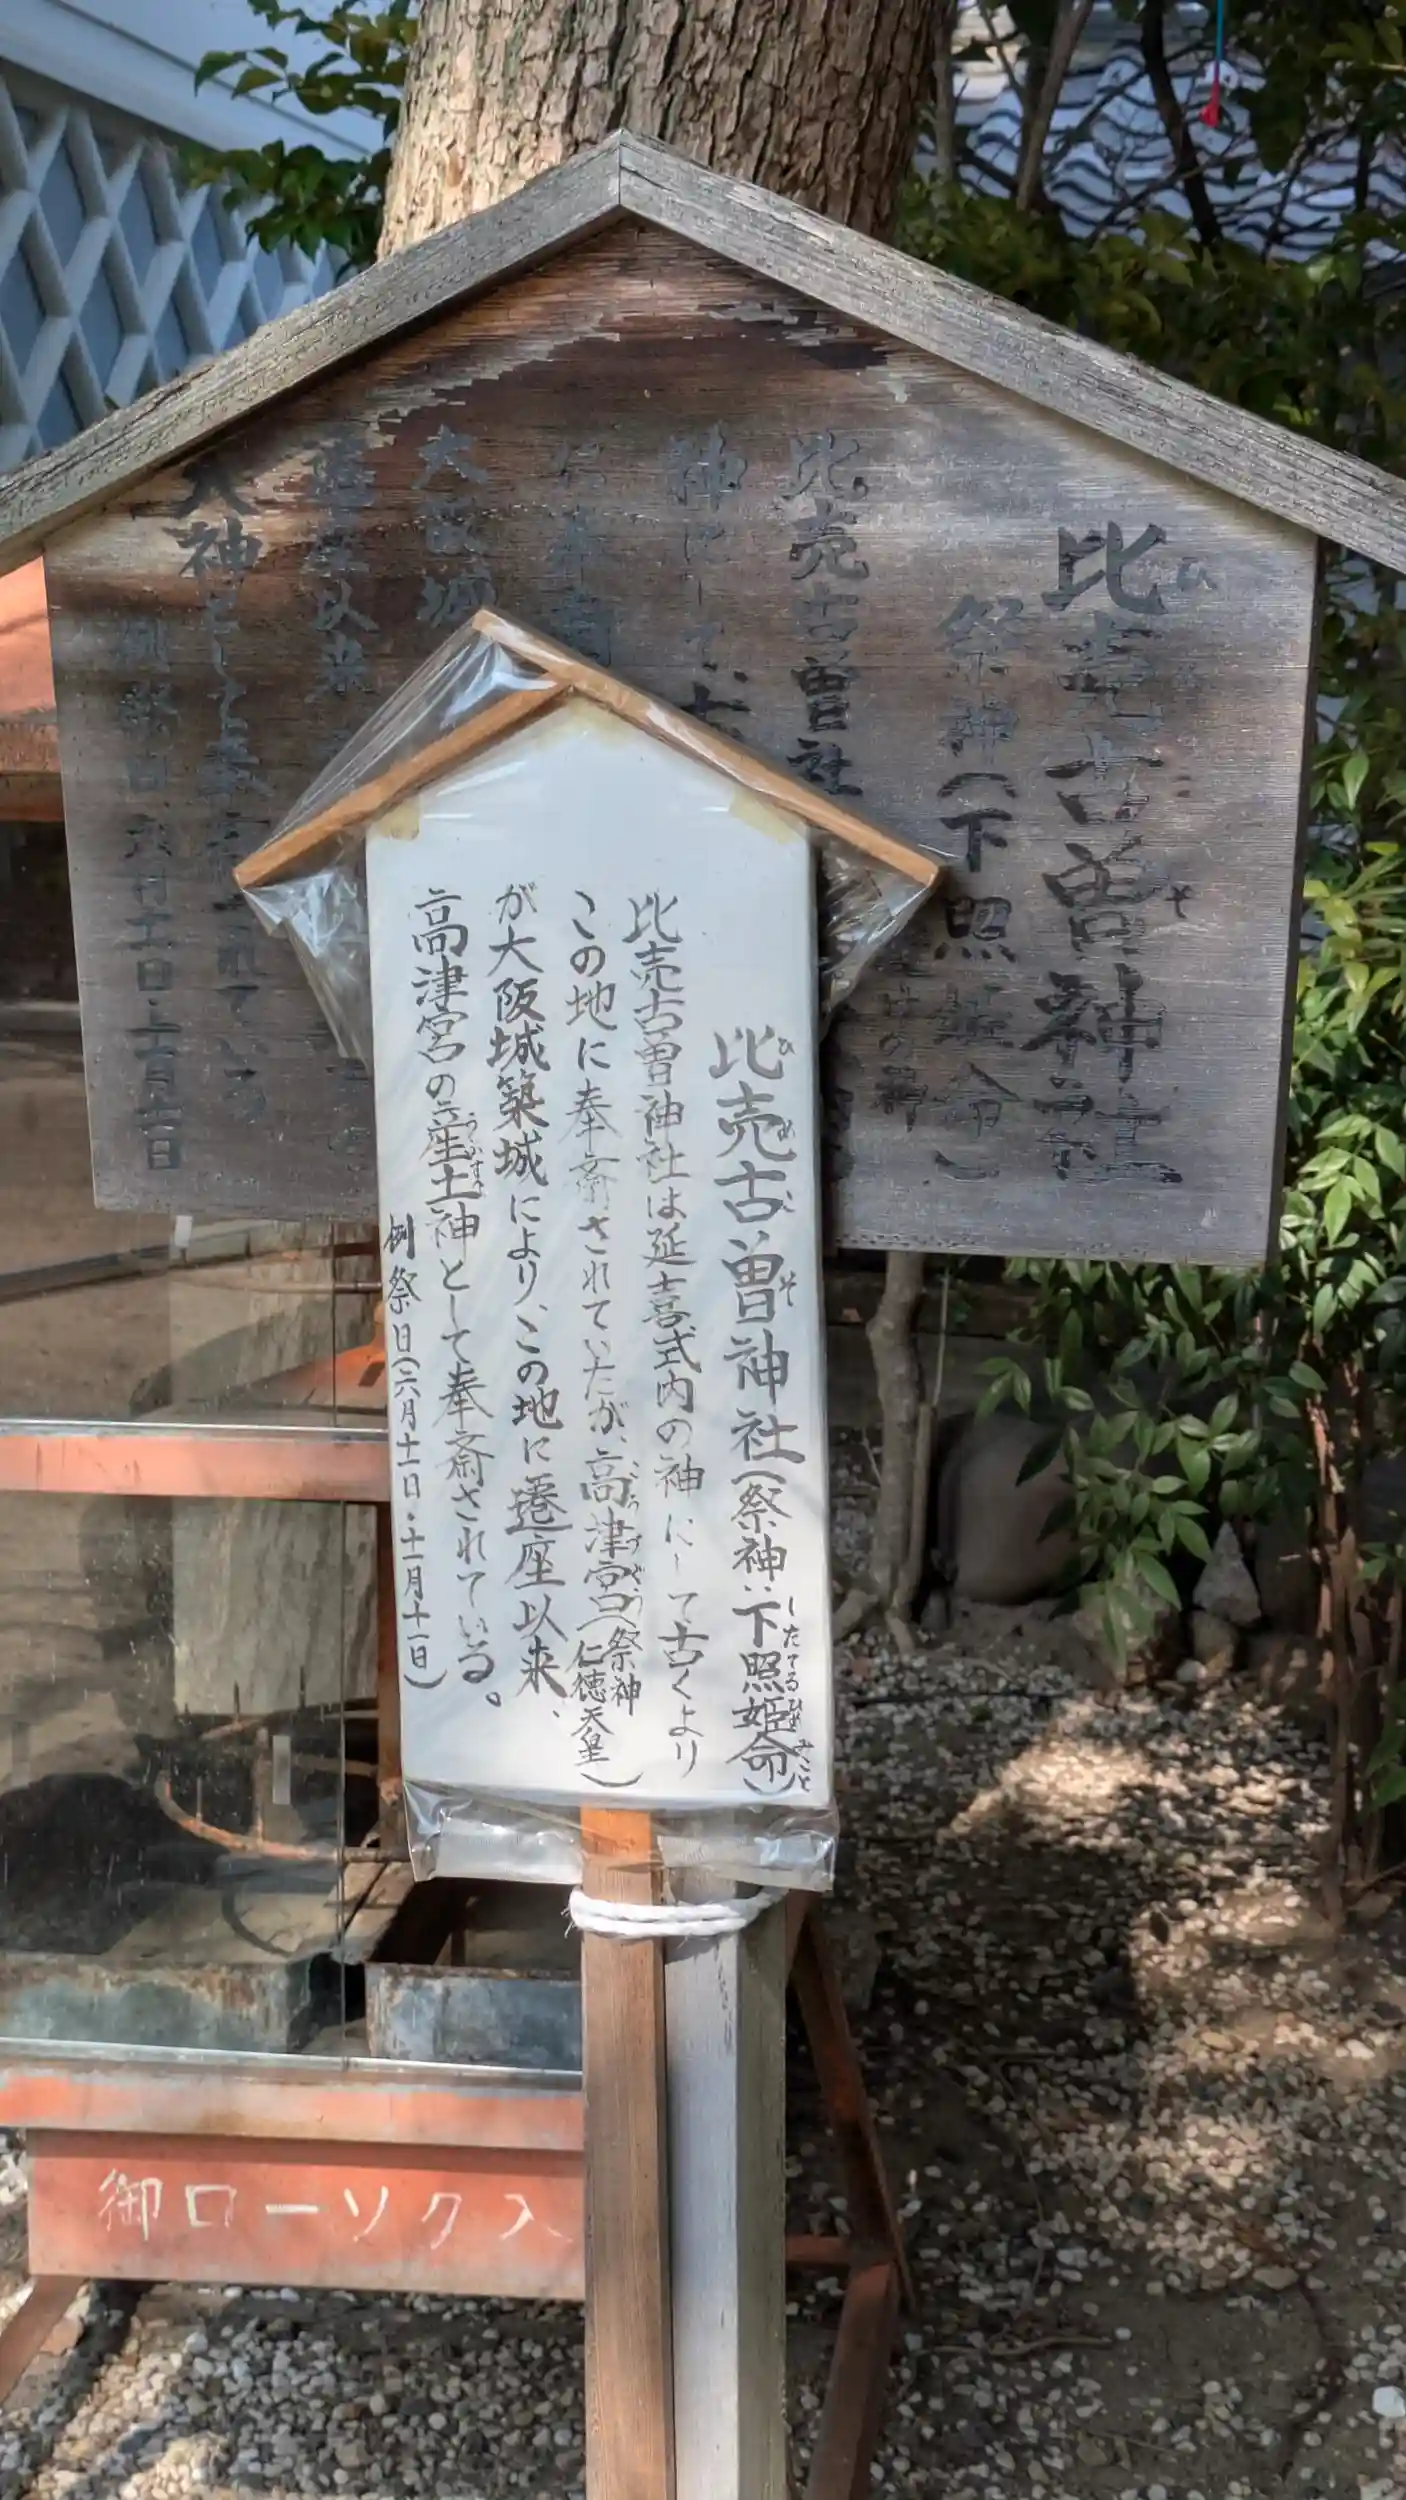 比売古曽神社
祭神(下照姫命)
比売古曽社
神にして、古
大坂城
遷座以来
大神として奉斎されている
例祭日 六月十一日・十一月十一日
比売古曽神社(祭神:下照姫命)
ひめこそ
したてるひめみこと
比売古曽神社は延喜式内の神にして古くより
この地に奉斎されていたが、高津宮(祭神仁徳天皇)
こうづぐう
が大阪城築城により、この地に遷座以来、
高津宮の産土神として奉斎されている。
うぶすな
例祭日(六月十一日・十一月十一日)
御ローソク入